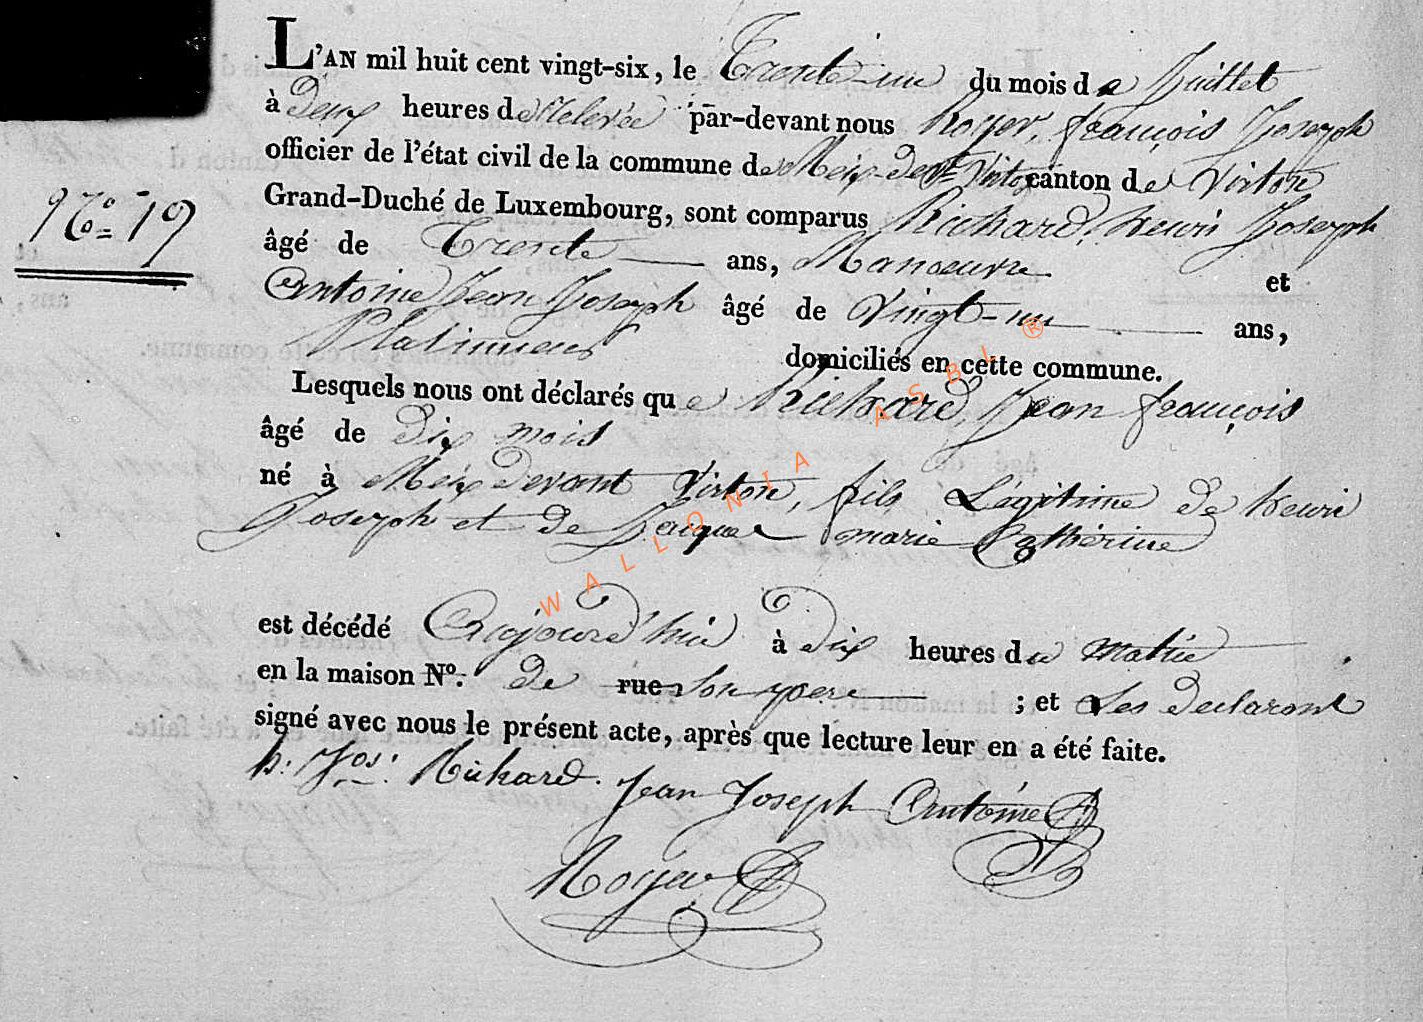 L'AN mil huit cent vingt-six, le Trente-un du mois de Juillet
à Deux heures de Relevée par-devant nous Royer, françois Joseph
officier de l'état civil de la commune de Meix-devt Virton canton de Virton
Grand-Duché de Luxembourg, sont comparus Richard, henri Joseph
No 19
âgé de Trente ans, Manoeuvre et
Antoine Jean Joseph âgé de Vingt-un ans,
Platineur domiciliés en cette commune.
Lesquels nous ont déclarés que Richard, Jean françois
âgé de dix mois
né à Meix devant Virton, fils Légitime de henri
Joseph et de Jacque marie Catherine
est décédé Aujourd'hui à Dix heures du matin
en la maison No. de rue Son pere ; et Les declaront
signé avec nous le présent acte, après que lecture leur en a été faite.
h: Jos: Richard. Jean Joseph Antoine
Royer
WALLONIA ASBL ®